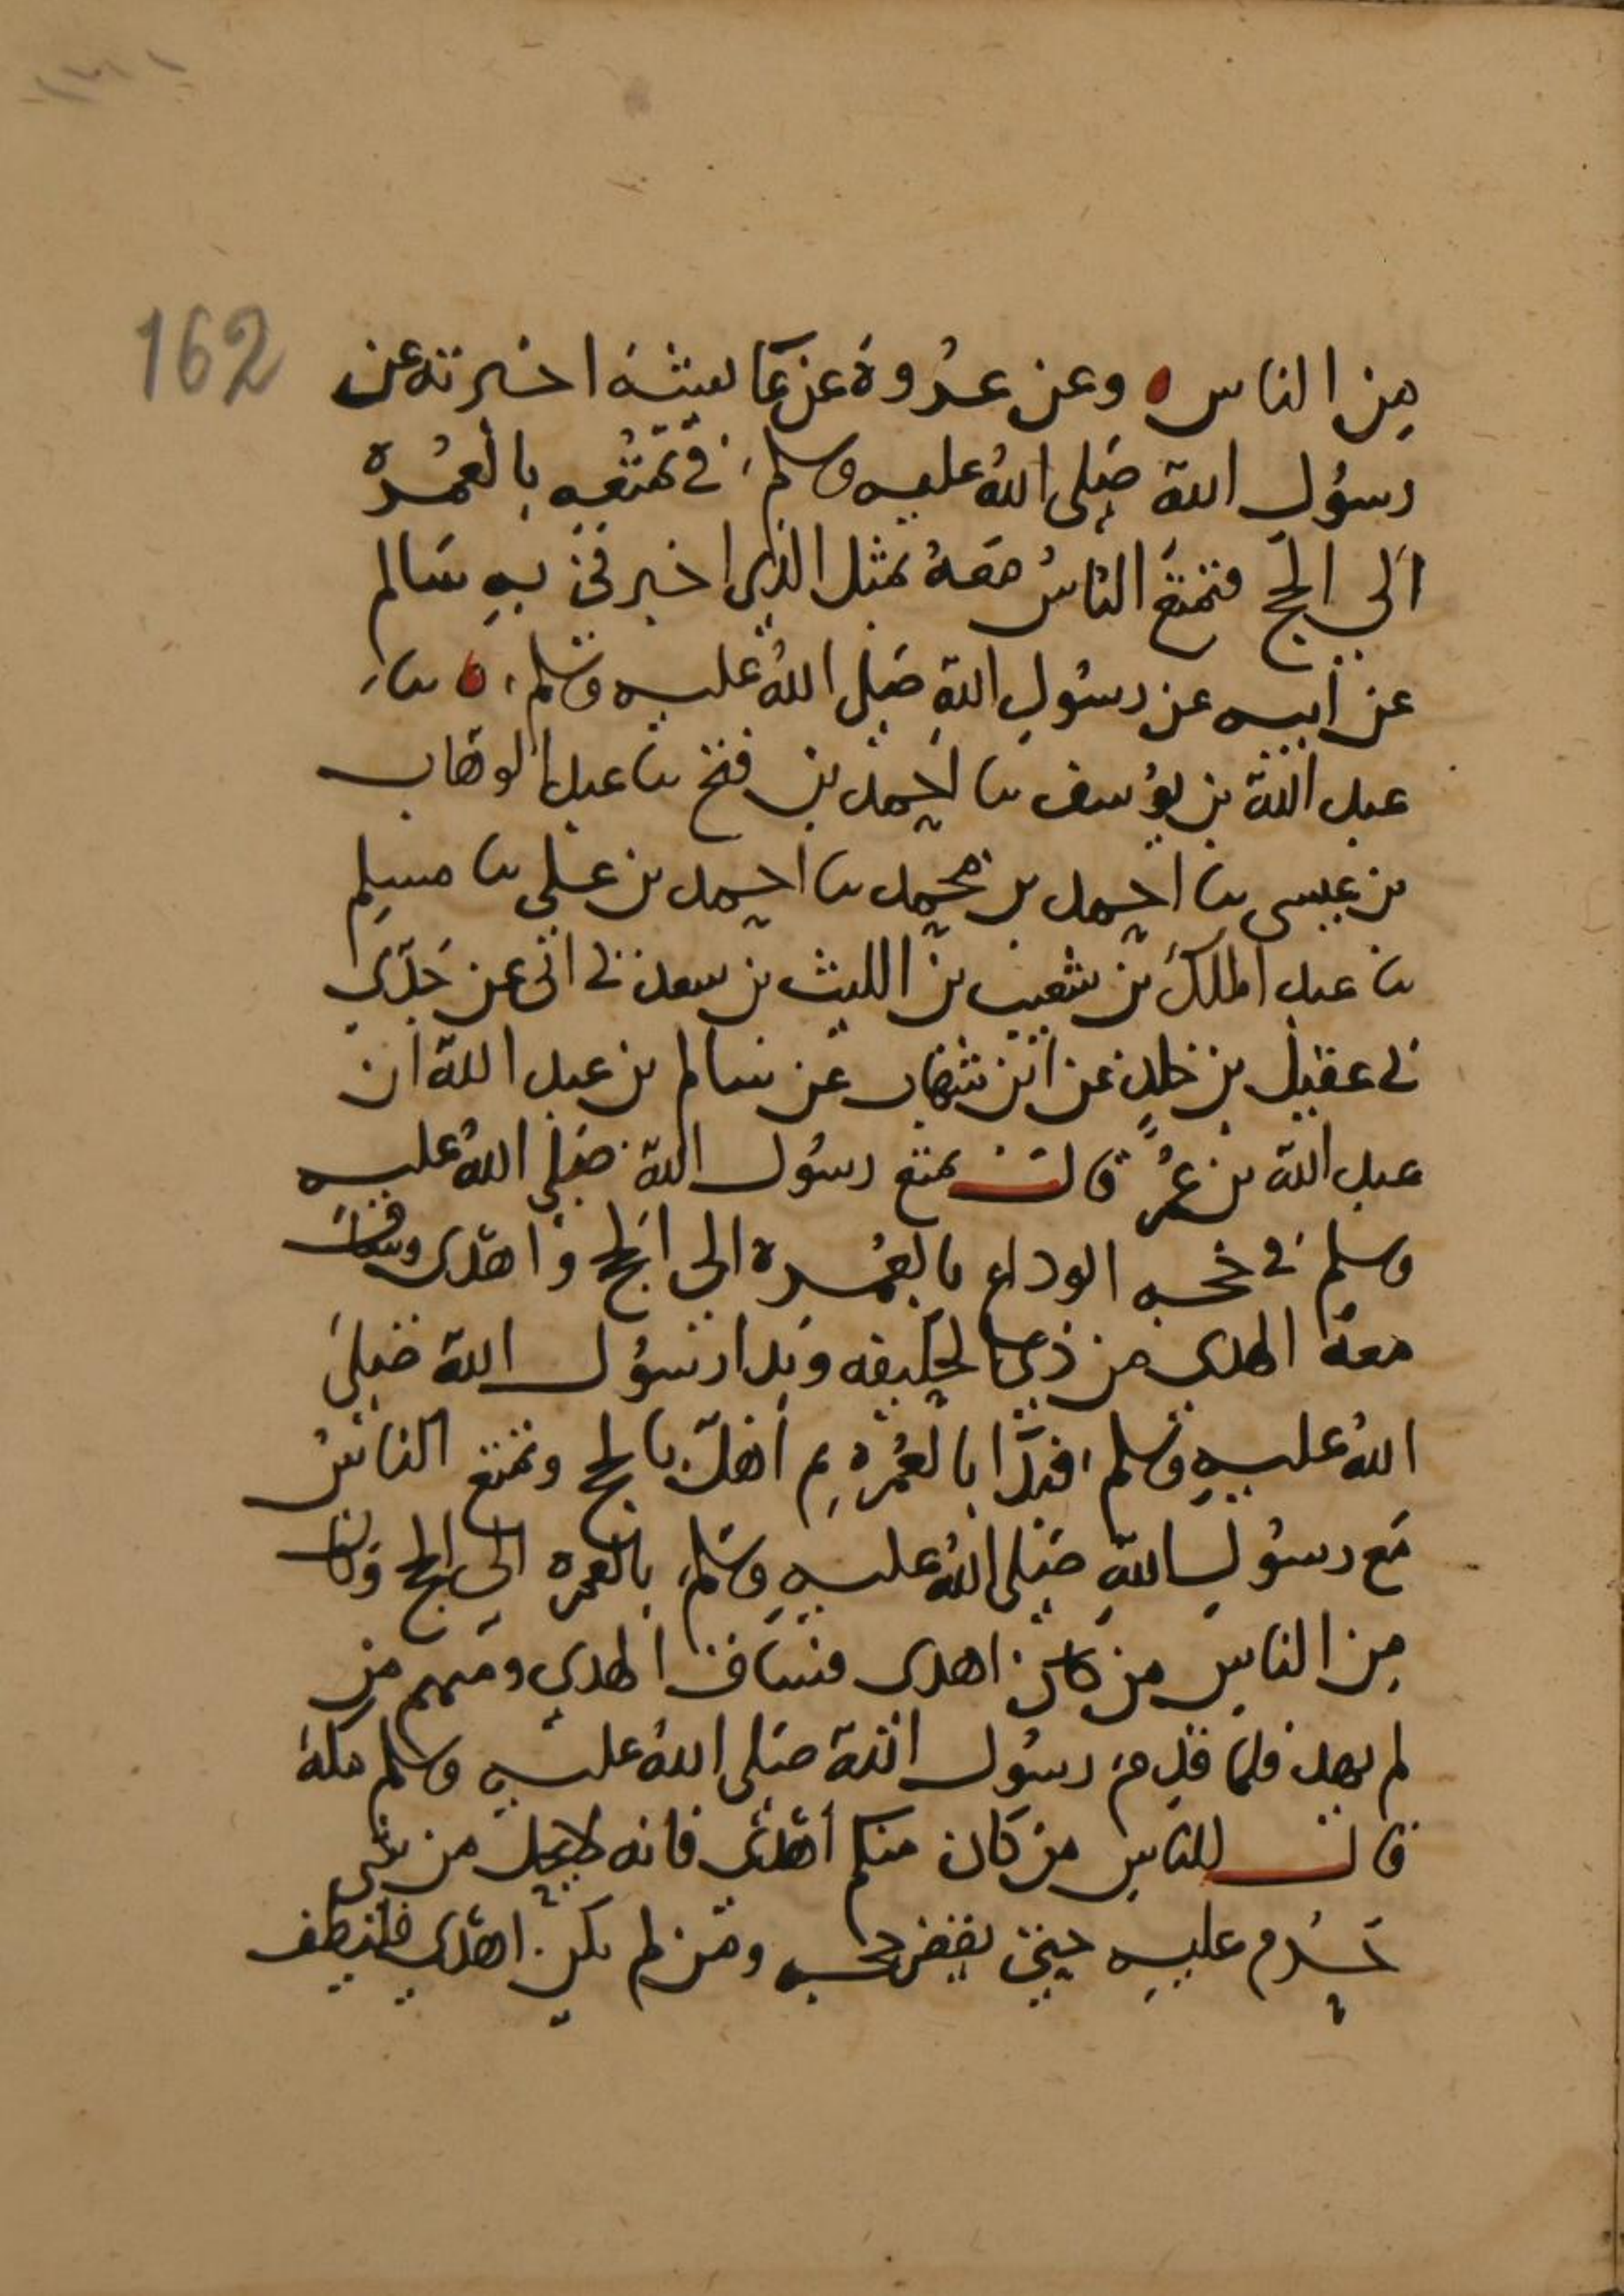 162
من الناس ه وعن عروة عن عائشة اخبرته عن
رسول الله صلى الله عليه وسلم في تمتعه بالعمرة
الى الحج فتمتع الناس معه بمثل الذي اخبرني به سالم
عن ابيه عن رسول الله صلى الله عليه وسلم ه نا
عبد الله بن يوسف نا احمد بن فتح نا عبد الوهاب
بن عيسى نا احمد بن محمد نا احمد بن علي نا مسلم
نا عبد الملك بن شعيب بن الليث بن سعد ني ابي عن جدي
ني عقيل بن خلد عن ابن شهاب عن سالم بن عبد الله ان
عبد الله بن عمر قال تمتع رسول الله صلى الله عليه
وسلم في حجه الوداع بالعمره الى الحج واهدى وساق
معه الهدي من ذي الحليفه وبدا رسول الله صلى
الله عليه وسلم فبدا بالعمره ثم اهل بالحج وتمتع الناس
مع رسول الله صلى الله عليه وسلم بالعمره الى الحج وكان
من الناس من كان اهدى فساق الهدي ومنهم من
لم يهد فلما قدم رسول الله صلى الله عليه وسلم مكة
قال للناس من كان منكم أهدى فانه لا يحل من شي
حرم عليه حتى يقضى حجه ومن لم يكن اهدى فليطف